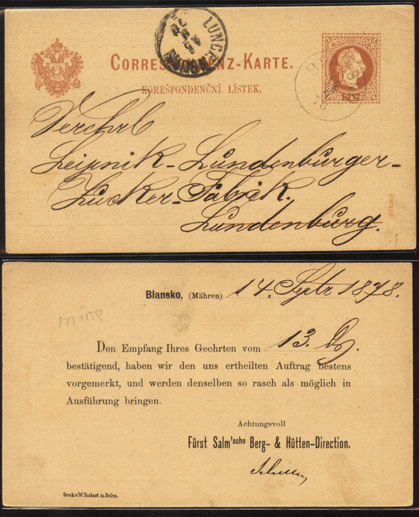 CORRESPONDENZ-KARTE.
KORESPONDENČNÍ LÍSTEK.
LUNDENBURG
Verehrl
Leipnik-Lundenburger-
Zucker-Fabrik.
Lundenburg.
Blansko, (Mähren) 14. Sptr 1878.
mine
Den Empfang Ihres Geehrten vom 13. ds.
bestätigend, haben wir den uns ertheilten Auftrag bestens
vorgemerkt, und werden denselben so rasch als möglich in
Ausführung bringen.
Achtungsvoll
Fürst Salm'sche Berg- & Hütten-Direction.
Druck v. W. Burkart in Brünn.